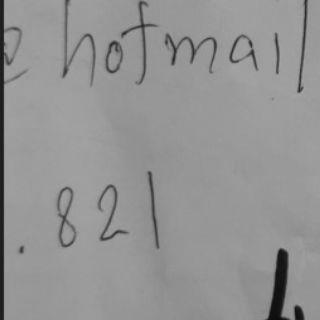 @hotmail
.821